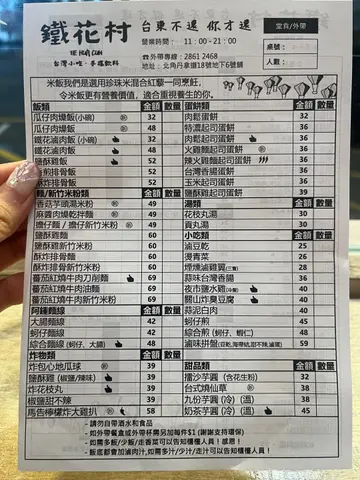 鐵花村
THE HUA CUN
台灣小吃·手搖飲料
台東不遠 你才遠
營業時間： 11：00-21：00
外帶專線：2861 2468
地址：北角丹拿道18號地下6號舖
堂食/外帶
桌號：
人數：
米飯我們是選用珍珠米混合紅藜一同烹飪，
令米飯更有營養價值，適合重視養生的你。
飯類 金額 數量
瓜仔肉燥飯(小碗) 32
瓜仔肉燥飯 48
鐵花滷肉飯(小碗) 32
鐵花滷肉飯 48
鹽酥雞飯 52
香煎排骨飯 52
酥炸排骨飯 52
麵/新竹米粉類 金額 數量
香菇芋頭湯米粉 49
麻醬肉燥乾拌麵 49
擔仔麵 / 擔仔新竹米粉 49
鹽酥雞麵 60
鹽酥雞新竹米粉 60
酥炸排骨麵 60
酥炸排骨新竹米粉 60
蕃茄紅燒牛肉刀削麵 69
蕃茄紅燒牛肉油麵 69
蕃茄紅燒牛肉新竹米粉 69
阿鍾麵線 金額 數量
大腸麵線 42
蚵仔麵線 42
綜合麵線 (蚵仔、大腸) 48
炸物類 金額 數量
炸包心地瓜球 39
鹽酥雞 (椒鹽/辣味) 39
炸花枝丸 39
椒鹽甜不辣 39
馬告檸檬炸大雞扒 58
蛋餅類 金額 數量
肉鬆蛋餅 36
特濃起司蛋餅 36
肉鬆起司蛋餅 36
火雞麵起司蛋餅 36
辣火雞麵起司蛋餅 36
台灣香腸蛋餅 36
玉米起司蛋餅 36
湯類 金額 數量
花枝丸湯 30
貢丸湯 30
小吃類 金額 數量
滷豆乾 25
燙青菜 26
煙燻滷雞翼(三隻) 28
蒜味台灣香腸 36
夜市鹽水雞(冷食) 40
關山炸臭豆腐 40
蒜泥白肉 40
蚵仔煎 45
綜合煎 (蚵仔、蝦仁) 48
滷味拼盤 59
甜品類 金額 數量
擂沙芋圓 (含花生粉) 32
台式燒仙草 38
九份芋圓 (冷) (溫) 38
奶茶芋圓 (冷) (溫) 45
- 請勿自帶酒水和食品
- 如外帶餐盒或外帶杯需另加每件$1 (謝謝支持環保)
- 如需多飯/少飯/走香菜可以告知樓層人員！感恩！
- 飯底都會加滷肉汁,如需多汁/少汁/走汁可以告知樓層人員！